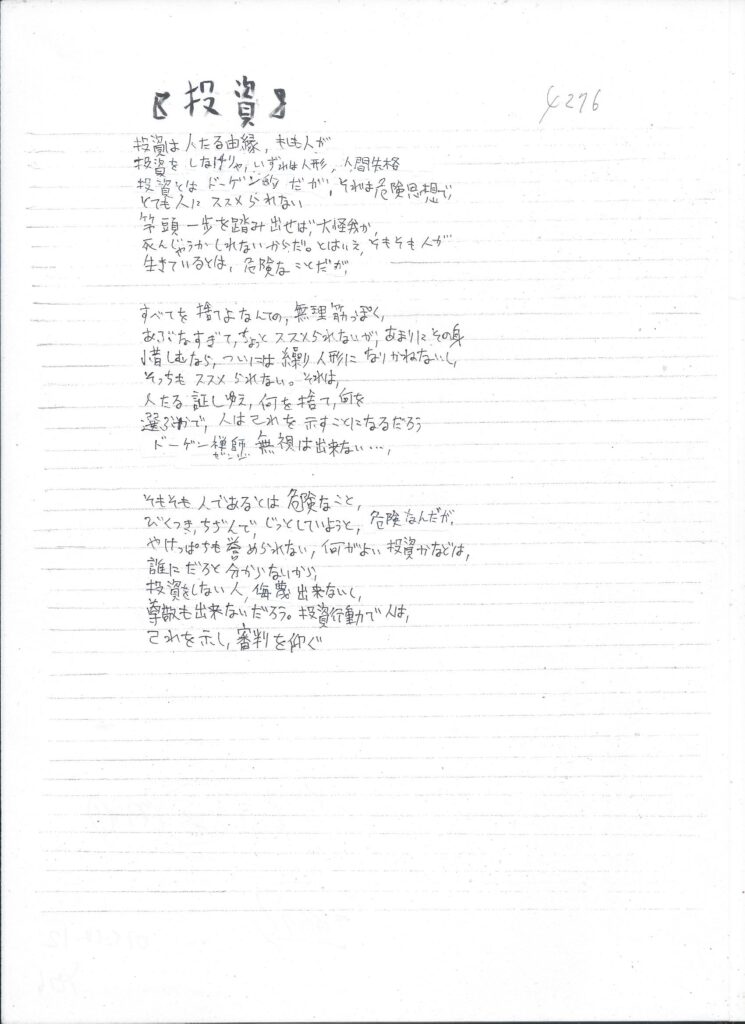 【投資】
4276
投資は人たる由縁, もしも人が
投資をしなけりゃ, いずれは人形, 人間失格
投資とはドーゲン的だが, それは危険思想で,
とても人にススメられない
竿頭一歩を踏み出せば, 大怪我か,
死んじゃうかしれないからだ。とはいえ, そもそも人が
生きているとは, 危険なことだが,
すべてを捨てよなんての, 無理筋っぽく,
あぶなすぎて, ちょっとススメられないが, あまりにその身
惜しむなら, ついには繰り人形になりかねないし,
そっちもススメられない。それは,
人たる証しゆえ, 何を捨て, 何を
選ぶかで, 人はこれを示すことになるだろう
ドーゲン禅師 無視は出来ない…,
ゼンジ
そもそも人であるとは危険なこと,
びくつき, ちぢんで, じっとしていようと, 危険なんだが,
やけっぱちも誉められない, 何がよい投資かなどは,
誰にだろと分からないから,
投資をしない人, 侮蔑出来ないし,
尊敬も出来ないだろう。投資行動で人は,
己れを示し, 審判を仰ぐ